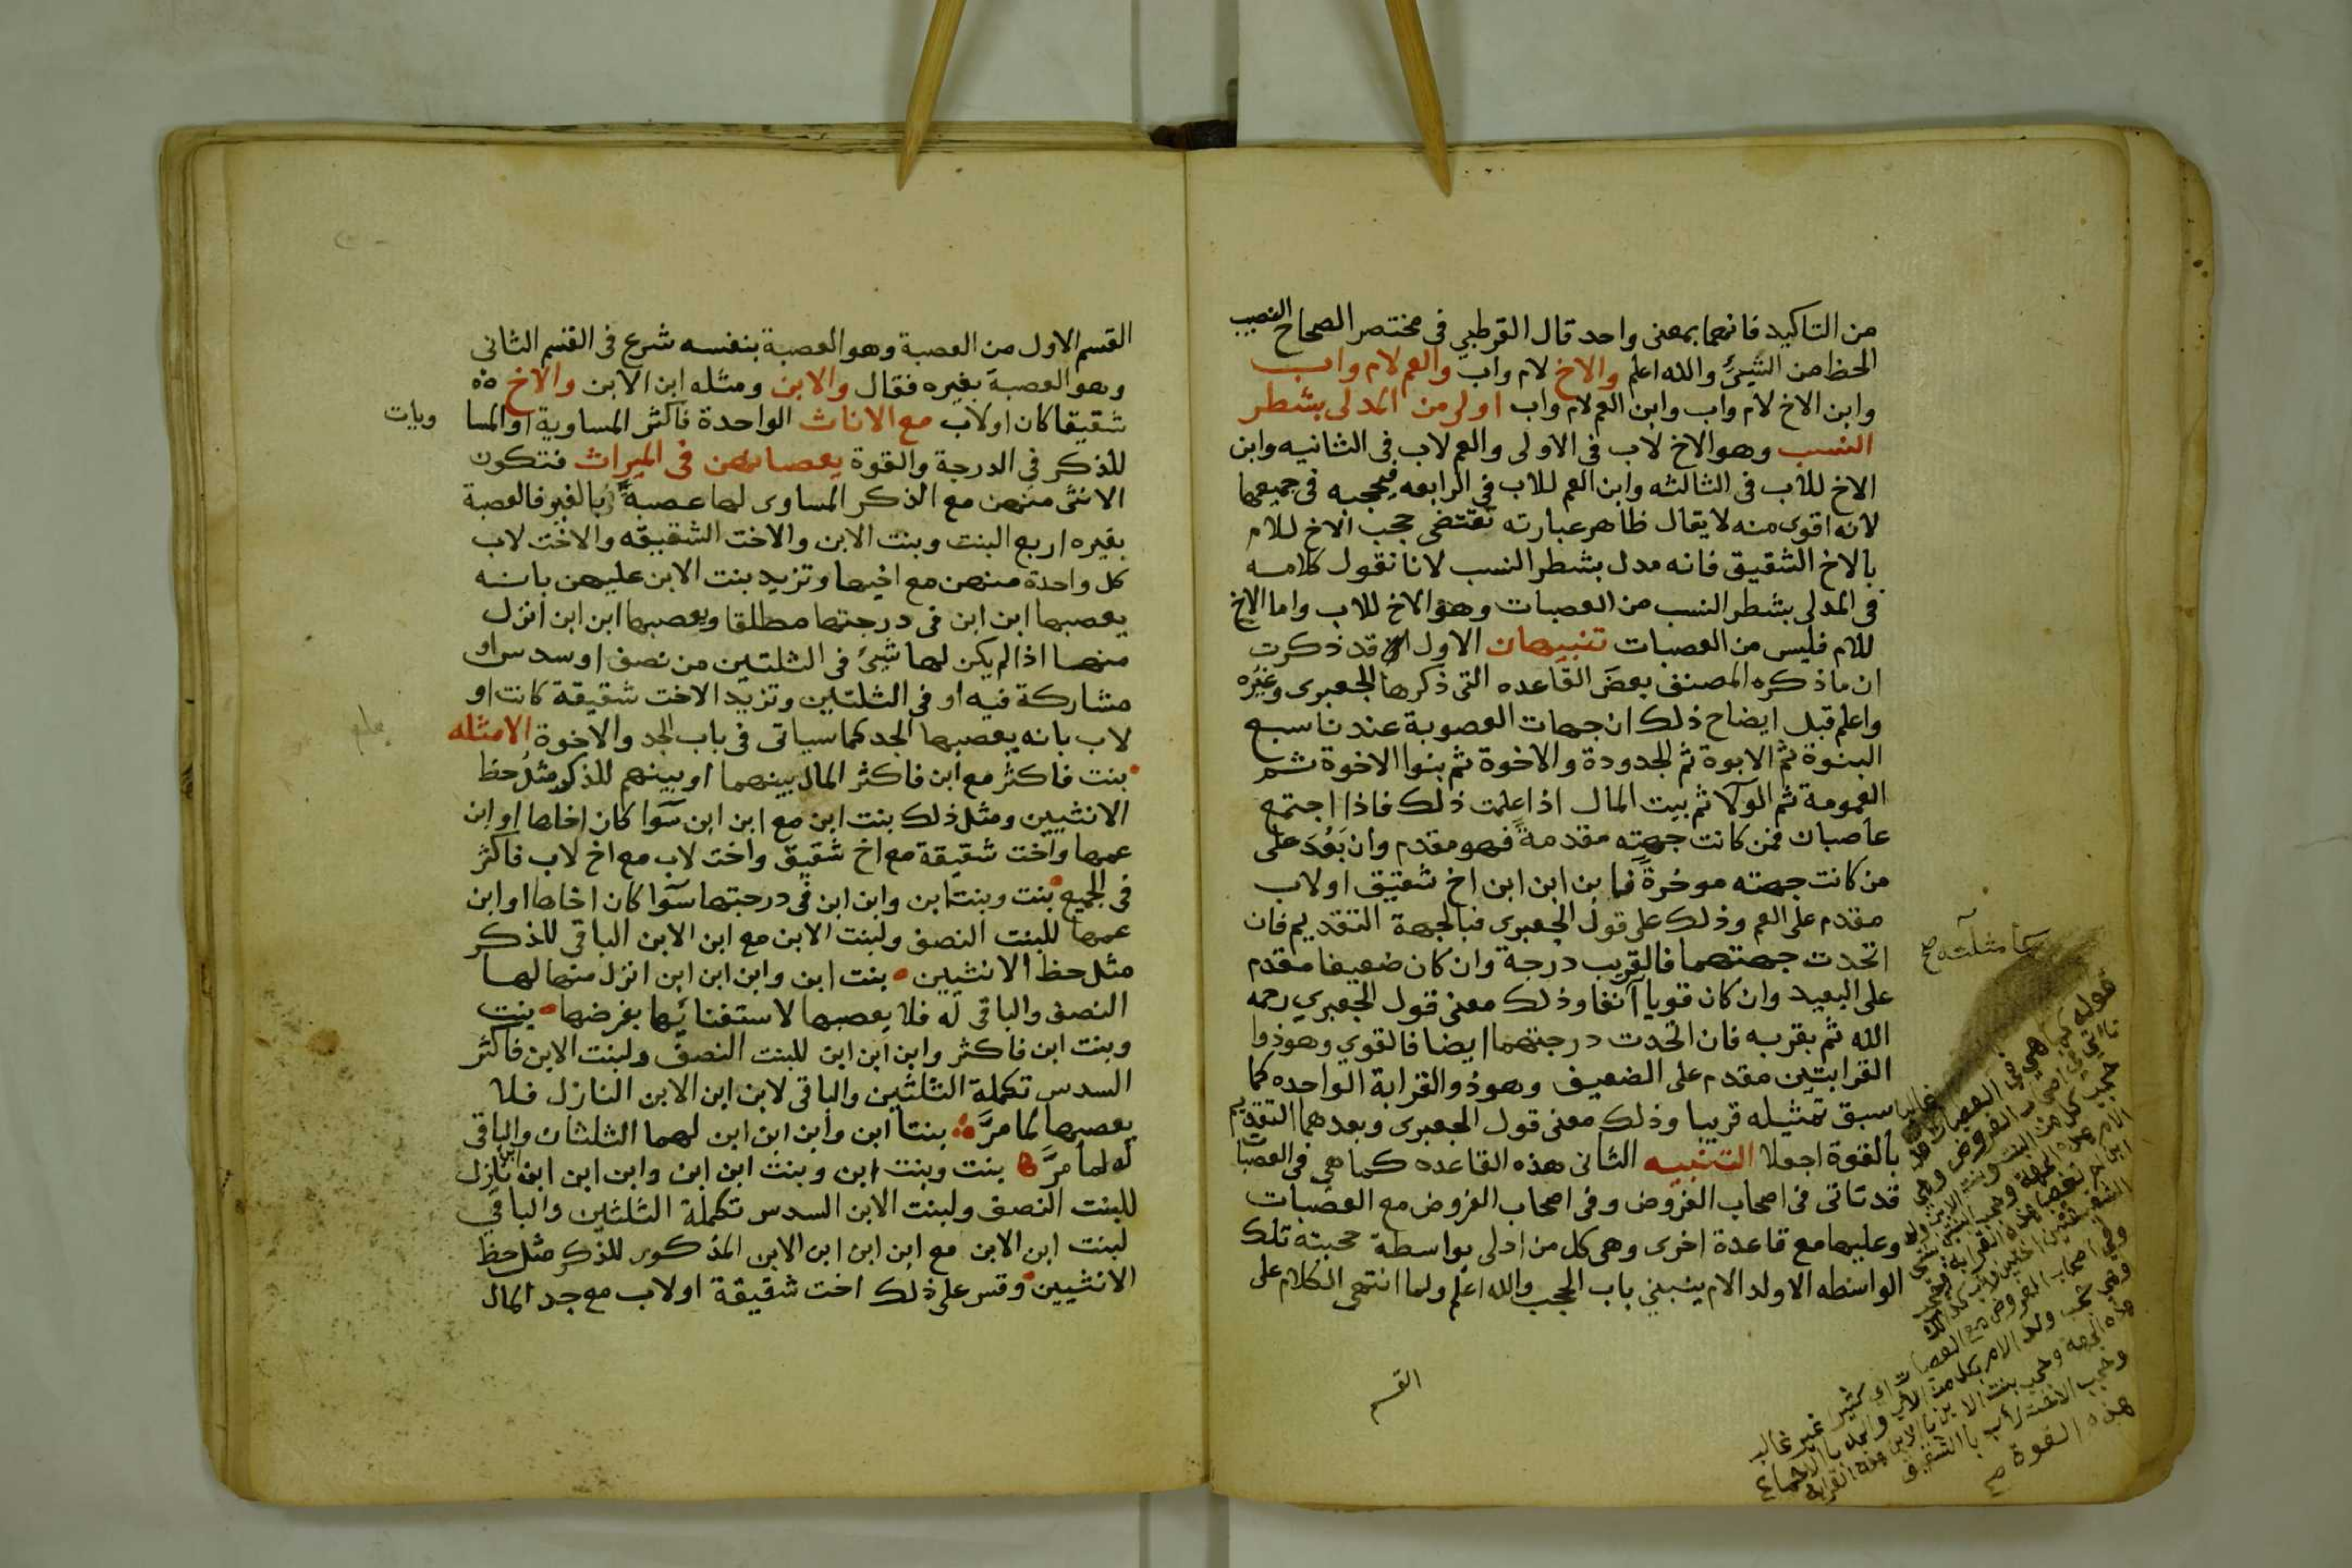 من التاكيد فانهما بمعنى واحد قال القرطبي في مختصر الصحاح النصيب
الحظ من الشيئ والله اعلم والاخ لام واب والعم لام واب
وابن الاخ لام واب وابن العم لام واب اولى من المدلى بشطر
النسب وهو الاخ لاب فى الاولى والعم لاب فى الثانيه وابن
الاخ للاب فى الثالثه وابن العم للاب في الرابعه فيحجبه فى جميعها
لانه اقوى منه لا يقال ظاهر عبارته تقتضى حجب الاخ للام
بالاخ الشقيق فانه مدل بشطر النسب لانا نقول كلامه
فى المدلى بشطر النسب من العصبات وهو الاخ للاب واما الاخ
للام فليس من العصبات تنبيهان الاول قد ذكرت
ان ما ذكره المصنف بعض القاعده التى ذكرها الجعبرى وغيره
واعلم قبل ايضاح ذلك ان جهات العصوبة عندنا سبع
البنوة ثم الابوة ثم الجدودة والاخوة ثم بنوا الاخوة ثم
العمومة ثم الولا ثم بيت المال اذا علمت ذلك فاذا اجتمع
عاصبان فمن كانت جهته مقدمة فهو مقدم وان بَعُدَ على
من كانت جهته موخرة فابن ابن ابن اخ شقيق او لاب
مقدم على العم وذلك على قول الجعبرى فبالجهة التقديم فان
اتحدت جهتهما فالقريب درجة وان كان ضعيفا مقدم
على البعيد وان كان قويا آنفا وذلك معنى قول الجعبري رحمه
الله ثم بقربه فان اتحدت درجتهما ايضا فالقوي وهو ذوا
القرابتين مقدم على الضعيف وهو ذو القرابة الواحده كما
سبق تمثيله قريبا وذلك معنى قول الجعبرى وبعدهما التقديم
بالقوة اجعلا التنبيه الثانى هذه القاعده كما هي فى العصبات
قد تاتى فى اصحاب الفروض وفى اصحاب الفروض مع العصبات
وعليها مع قاعدة اخرى وهى كل من ادلى بواسطة حجبته تلك
الواسطه الا ولد الام ينبني باب الحجب والله اعلم ولما انتهى الكلام على
القسم
كأمثلته صح
قوله كما هي في العصبات
وفي اصحاب الفروض مع العصبات اي كثير غير غالب
وهي حجب ولد الام بكل من الاب والجد بالاجماع
هذه الجهة وحجب بنت الابن بالابن هذه القرابة
وحجب الاخت لأب بالشقيق
هذه القوة صح
القسم الاول من العصبة وهو العصبة بنفسه شرع فى القسم الثانى
وهو العصبة بغيره فقال والابن ومثله ابن الابن والاخ
شقيقا كان او لاب مع الاناث الواحدة فاكثر المساوية او المسا
ويات
للذكر في الدرجة والقوة يعصبانهن فى الميراث فتكون
الانثى منهن مع الذكر المساوى لها عصبة بالغير فالعصبة
بغيره اربع البنت وبنت الابن والاخت الشقيقه والاخت لاب
كل واحدة منهن مع اخيها وتزيد بنت الابن عليهن بانه
يعصبها ابن ابن فى درجتها مطلقا ويعصبها ابن ابن انزل
منها اذا لم يكن لها شيئ فى الثلثين من نصف او سدس او
مشاركة فيه او فى الثلثين وتزيد الاخت شقيقة كانت او
لاب بانه يعصبها الجد كما سياتى فى باب الجد والاخوة الامثله
بنت فاكثر مع ابن فاكثر المال بينهما او بينهم للذكر مثل حظ
الانثيين ومثل ذلك بنت ابن مع ابن ابن سوا كان اخاها او ابن
عمها واخت شقيقة مع اخ شقيق واخت لاب مع اخ لاب فاكثر
فى الجميع بنت وبنت ابن وابن ابن فى درجتها سوا كان اخاها او ابن
عمها للبنت النصف ولبنت الابن مع ابن الابن الباقى للذكر
مثل حظ الانثيين بنت ابن وابن ابن ابن انزل منها لها
النصف والباقى له فلا يعصبها لاستغنائها بفرضها بنت
وبنت ابن فاكثر وابن ابن ابن للبنت النصف ولبنت الابن فاكثر
السدس تكملة الثلثين والباقى لابن ابن الابن النازل فلا
يعصبها لما مرَّ بنتا ابن وابن ابن ابن لهما الثلثان والباقى
له لما مرَّ بنت وبنت ابن وبنت ابن ابن وابن ابن ابن ابن نازل
للبنت النصف ولبنت الابن السدس تكملة الثلثين والباقي
لبنت ابن الابن مع ابن ابن ابن الابن المذكور للذكر مثل حظ
الانثيين وقس على ذلك اخت شقيقة او لاب مع جد المال